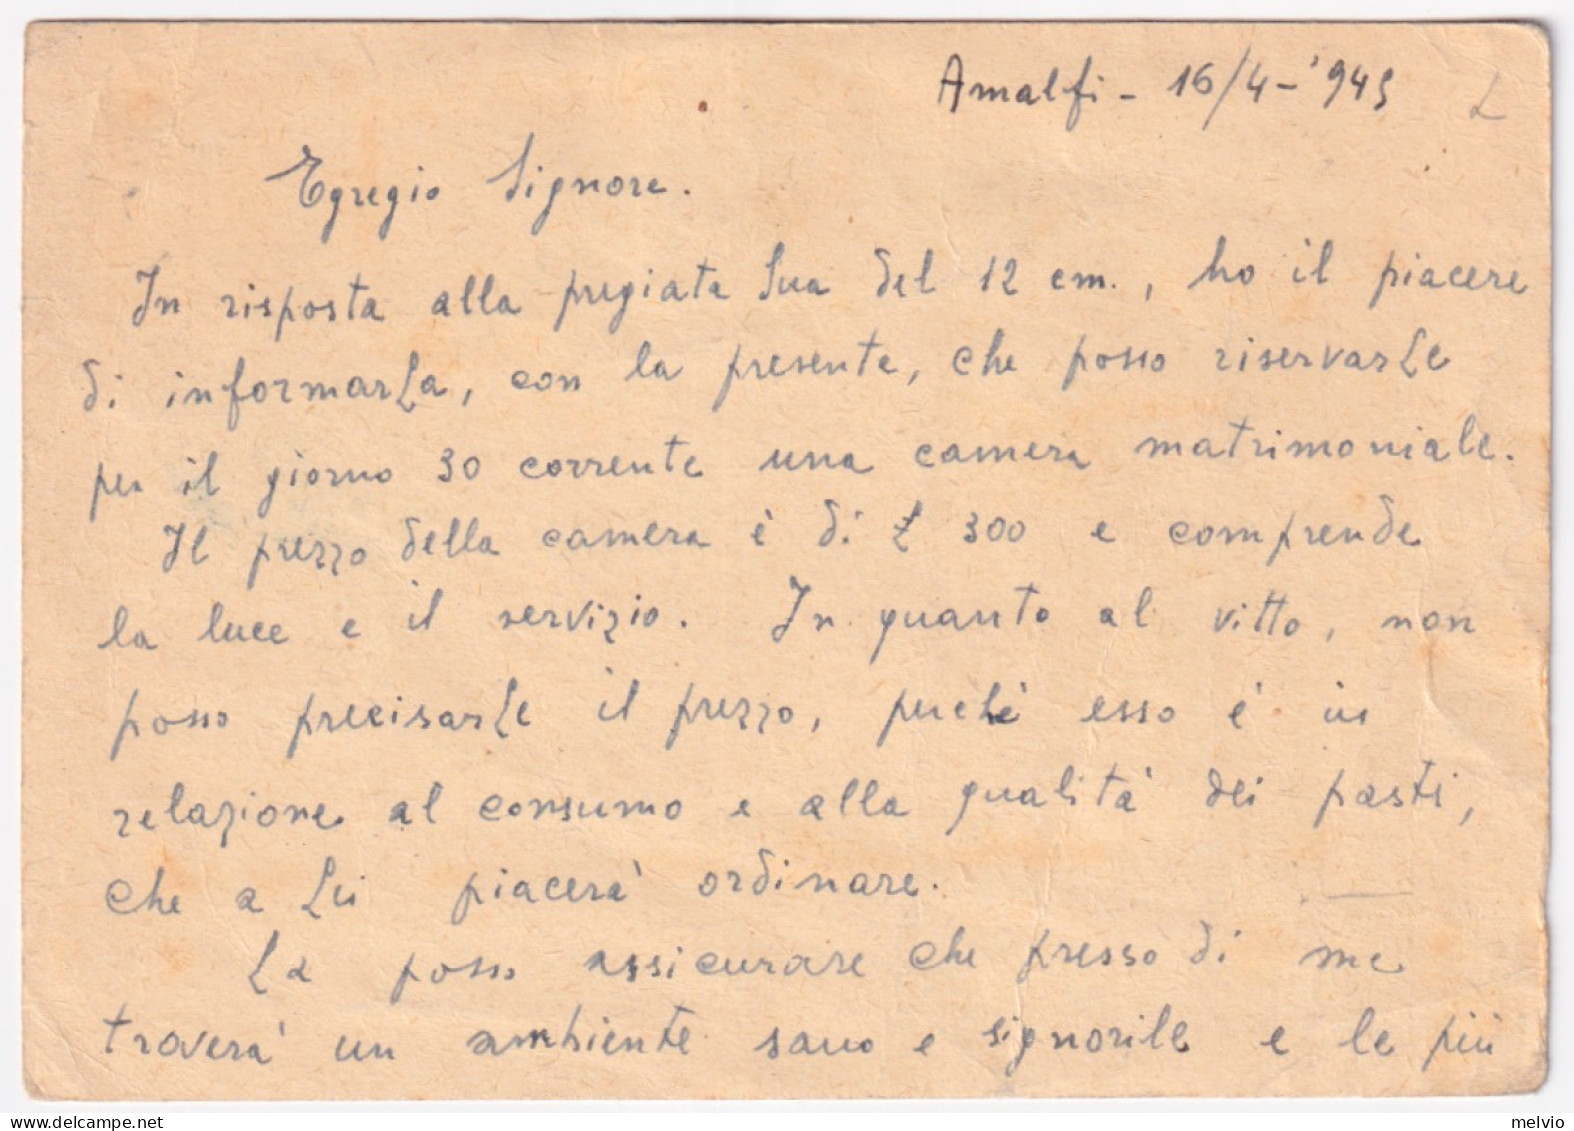 Amalfi - 16/4-'945
Egregio Signore.
In risposta alla pregiata Sua del 12 cm., ho il piacere
di informarLa, con la presente, che posso riservarLe
per il giorno 30 corrente una camera matrimoniale.
Il prezzo della camera è di £ 300 e comprende
la luce e il servizio. In quanto al vitto, non
posso precisarLe il prezzo, perchè esso è in
relazione al consumo e alla qualità dei pasti,
che a Lei piacerà ordinare.
La posso assicurare che presso di me
troverà un ambiente sano e signorile e le più
melvio